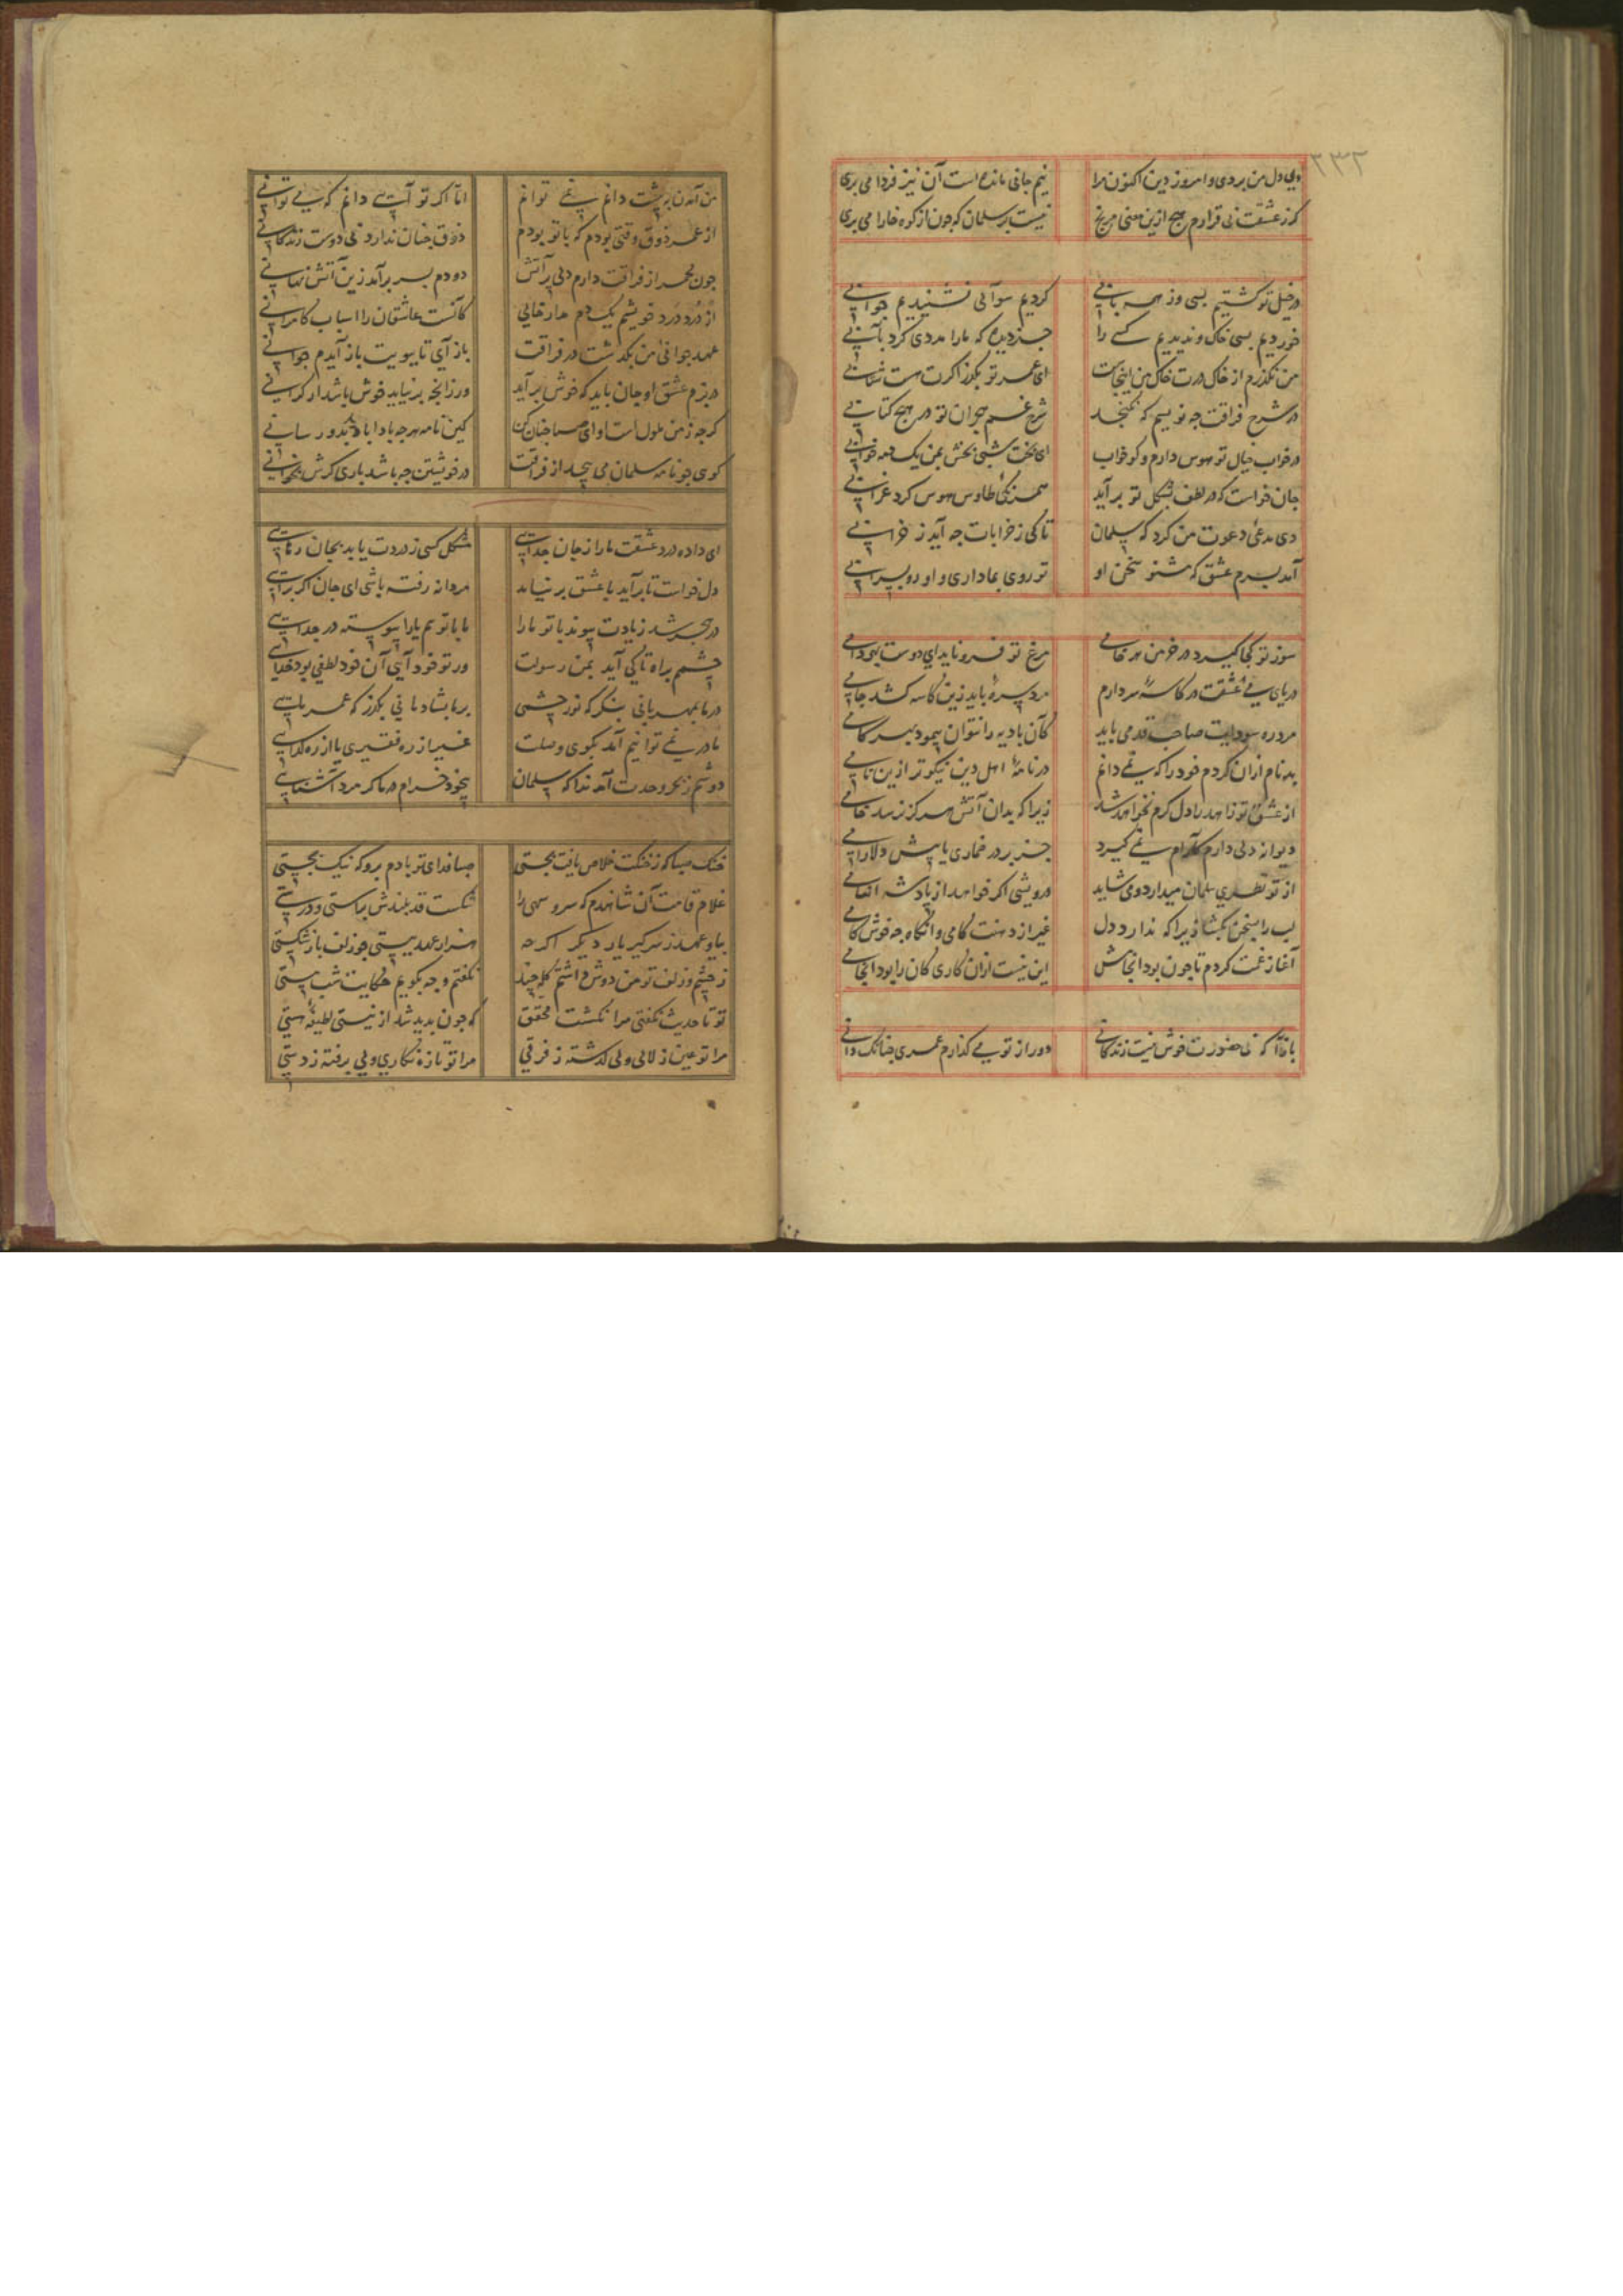 ۲۳۲
دی دل من بردی و امروز دین اکنون مرا نیم جانی مانده است آن نیز فردا می بری
کز عشقت بی قرارم هیچ ازین معنی مرنج نیست بر سلمان که چون از کوه خارا می بری
در خیل تو گشتیم بسی وز همه بابی کردیم سوآلی نشنیدیم جوابی
خوردیم بسی خاک و ندیدیم کسی را جز دیده که مارا مددی کرد بآبی
من نگذرم از خاک درت خاک من اینجاست ای عمر تو بگذر اگرت هست شتابی
در شرح فراقت چه نویسم که نگنجد شرح غم هجران تو در هیچ کتابی
در خواب خیال تو هوس دارم و کو خواب ای بخت شبی بخش بمن یک دمه خوابی
جان خواست که در لطف بشکل تو برآید همرنگی طاوس هوس کرد غرابی
دی مدعی دعوت من کرد که سلمان تا کی ز خرابات چه آید ز خرابی
آمد بسرم عشق که مشنو سخن او تو روی بما داری و او رو بسرابی
سوز تو کجا گیرد در خرمن هر خامی مرغ تو فرو ناید ای دوست بهر دامی
دریای می عشقت در کاسهٔ سر دارم مرد سره باید زین کاسه کشد جامی
مرد ره سودایت صاحب قدمی باید کآن بادیه را نتوان پیمود بهر گامی
بدنام ازان کردم خود را که نمی دانم در نامهٔ اهل دین نیکوتر ازین نامی
از عشق تو زاهد را دل گرم نخواهد شد زیرا که بدان آتش هرگز نرسد خامی
دیوانه دلی دارم کآرام نمی گیرد جز بر در خماری یا پیش دلارامی
از تو نظری سلمان میدارد و می شاید درویشی اگر خواهد از پادشه انعامی
لب را بسخن بگشا زیرا که ندارد دل غیر از دهنت کامی وانگاه چه خوش کامی
آغاز غمت کردم تا چون بود انجامش این نیست ازان کاری کان را بود انجامی
بازآ که بی حضورت خوش نیست زندگانی دور از تو می گذارم عمری چنانک دانی
من آمدن به پیشت دانم نمی توانم اما اگر تو آیی دانم که می توانی
از عمر ذوق وقتی بودم که با تو بودم ذوق چنان ندارد بی دوست زندگانی
چون مجمر از فراقت دارم دلی پرآتش دودم بسر برآمد زین آتش نهانی
از دُرد دَرد خویشم یکدم مدار خالی کآنست عاشقان را اسباب کامرانی
عهد جوانی من بگذشت در فراقت بازآی تا ببویت بازآیدم جوانی
در بزم عشق او جان باید که خوش برآید ورزانچه برنیاید خوش باشد ار گرانی
گرچه ز من ملول است او ای صبا چنان کن کین نامه هرچه بادا باد بدو رسانی
گوی چو نامه سلمان می پیچد از فراقت در خویشتن چه باشد باری گرش بخوانی
ای داده درد عشقت مارا ز جان جدایی مشکل کسی ز دردت یابد بجان رهایی
دل خواست تا برآید با عشق برنیامد مردانه رفته باشی ای جان اگر برآیی
در هجر شد زیادت پیوند با تو مارا ما با تو هم یارا پیوسته در جدایی
چشمم براه تا کی آید بمن رسولت ور تو خود آیی آن خود لطفی بود خدایی
در ما بمهربانی بنگر که نور چشمی بر ما بشادمانی بگذر که عمر مایی
ما در نمی توانیم آمد بکوی وصلت غیر از ره فقیری یا از ره گدایی
دوشم ز بحر وحدت آمد ندا که سلمان بیخود خرام در ما گر مرد آشنایی
خنک صبا که ز خنکت خلاص یافت بجستی صبا فدای تو بادم برو که نیک بجستی
غلام قامت آن شاهدم که سرو سهی را شکست قد بلندش براستی و درستی
بیا و عهد ز سر گیر بار دیگر اگرچه هزار عهد ببستی چو زلف باز شکستی
ز چشم و زلف تو من دوش داشتم گله چند نگفتم و چه بگویم حکایت شب مستی
تو تا حدیث نگفتی مرا نگشت محقق که چون پدید شد از نیستی لطیفهٔ هستی
مرا تو عین زلالی ولی گذشته ز فرقی مرا تو تازه نگاری ولی برفته ز دستی